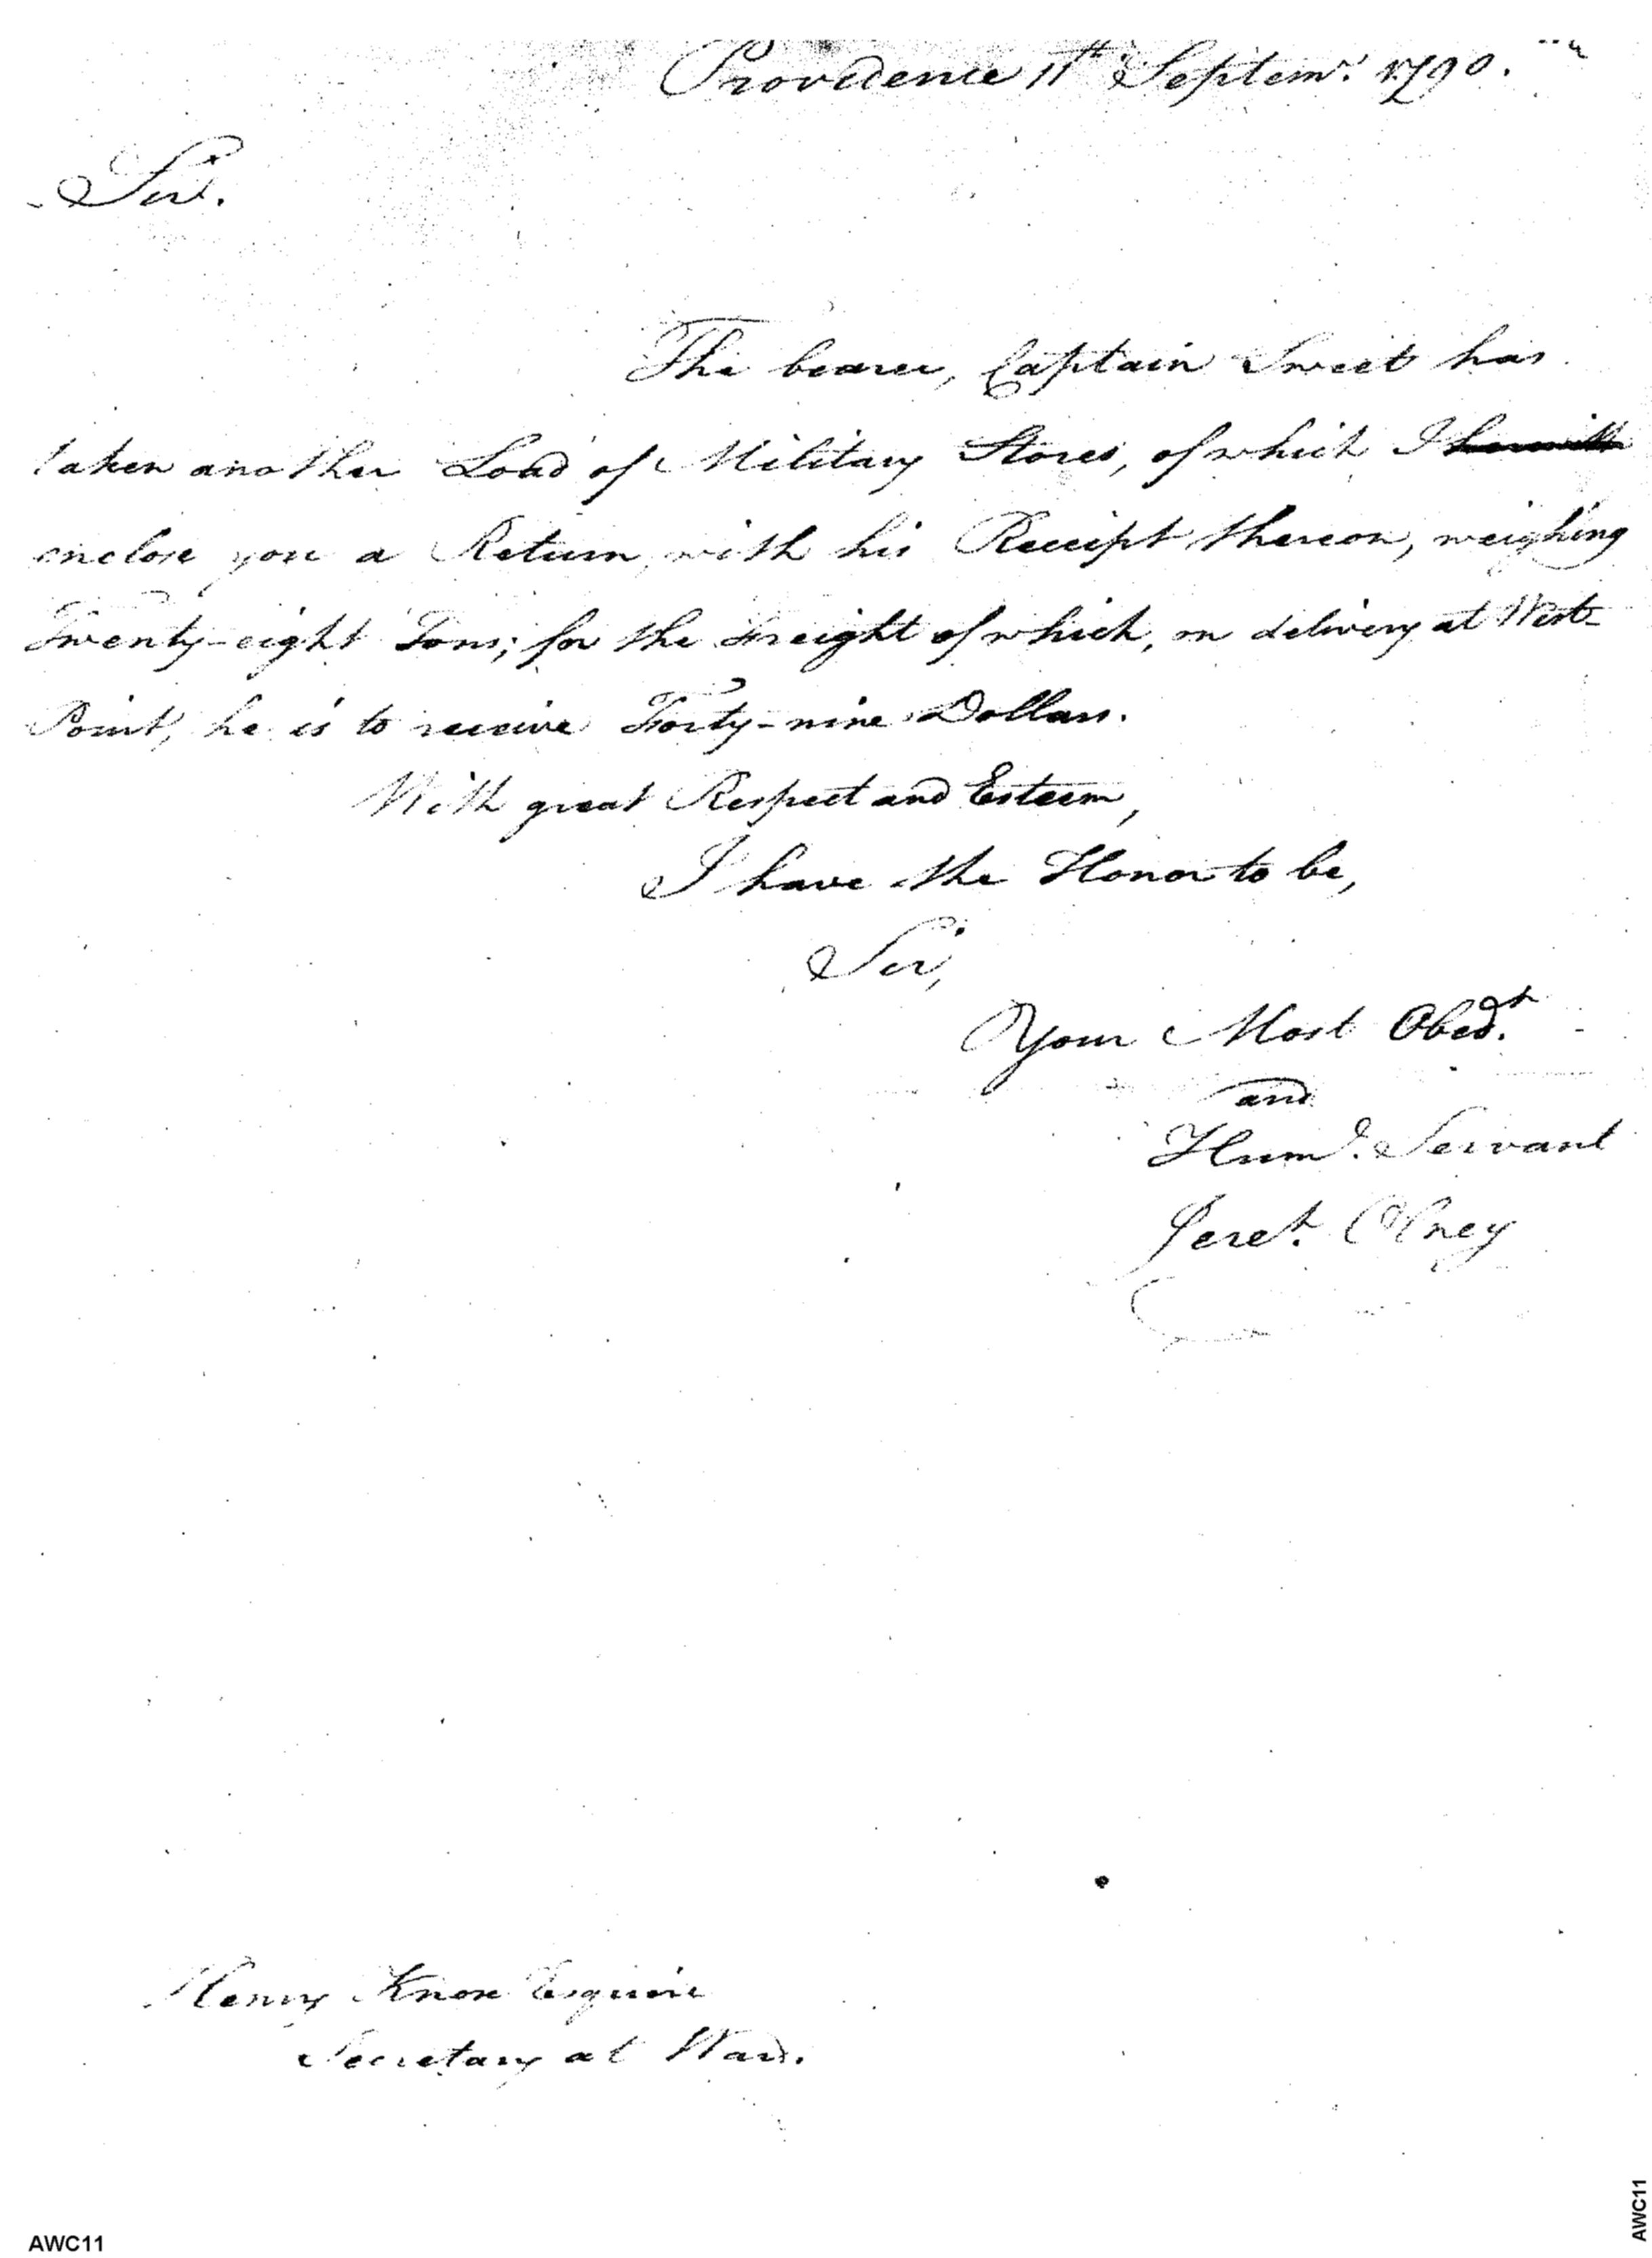 Providence 11th Septemr. 1790.
Sir.
The bearer, Captain Sweet has
taken another Load of Military Stores, of which I herewith
enclose you a Return, with his Receipt thereon, weighing
Twenty-eight Tons; for the Freight of which, on delivery at West-
Point, he is to receive Forty-nine Dollars.
With great Respect and Esteem,
I have the Honor to be,
Sir,
Your Most Obedt.
and
Hume. Servant
Jereh. Olney
Henry Knox Esquire
Secretary at War.
AWC11
AWC11